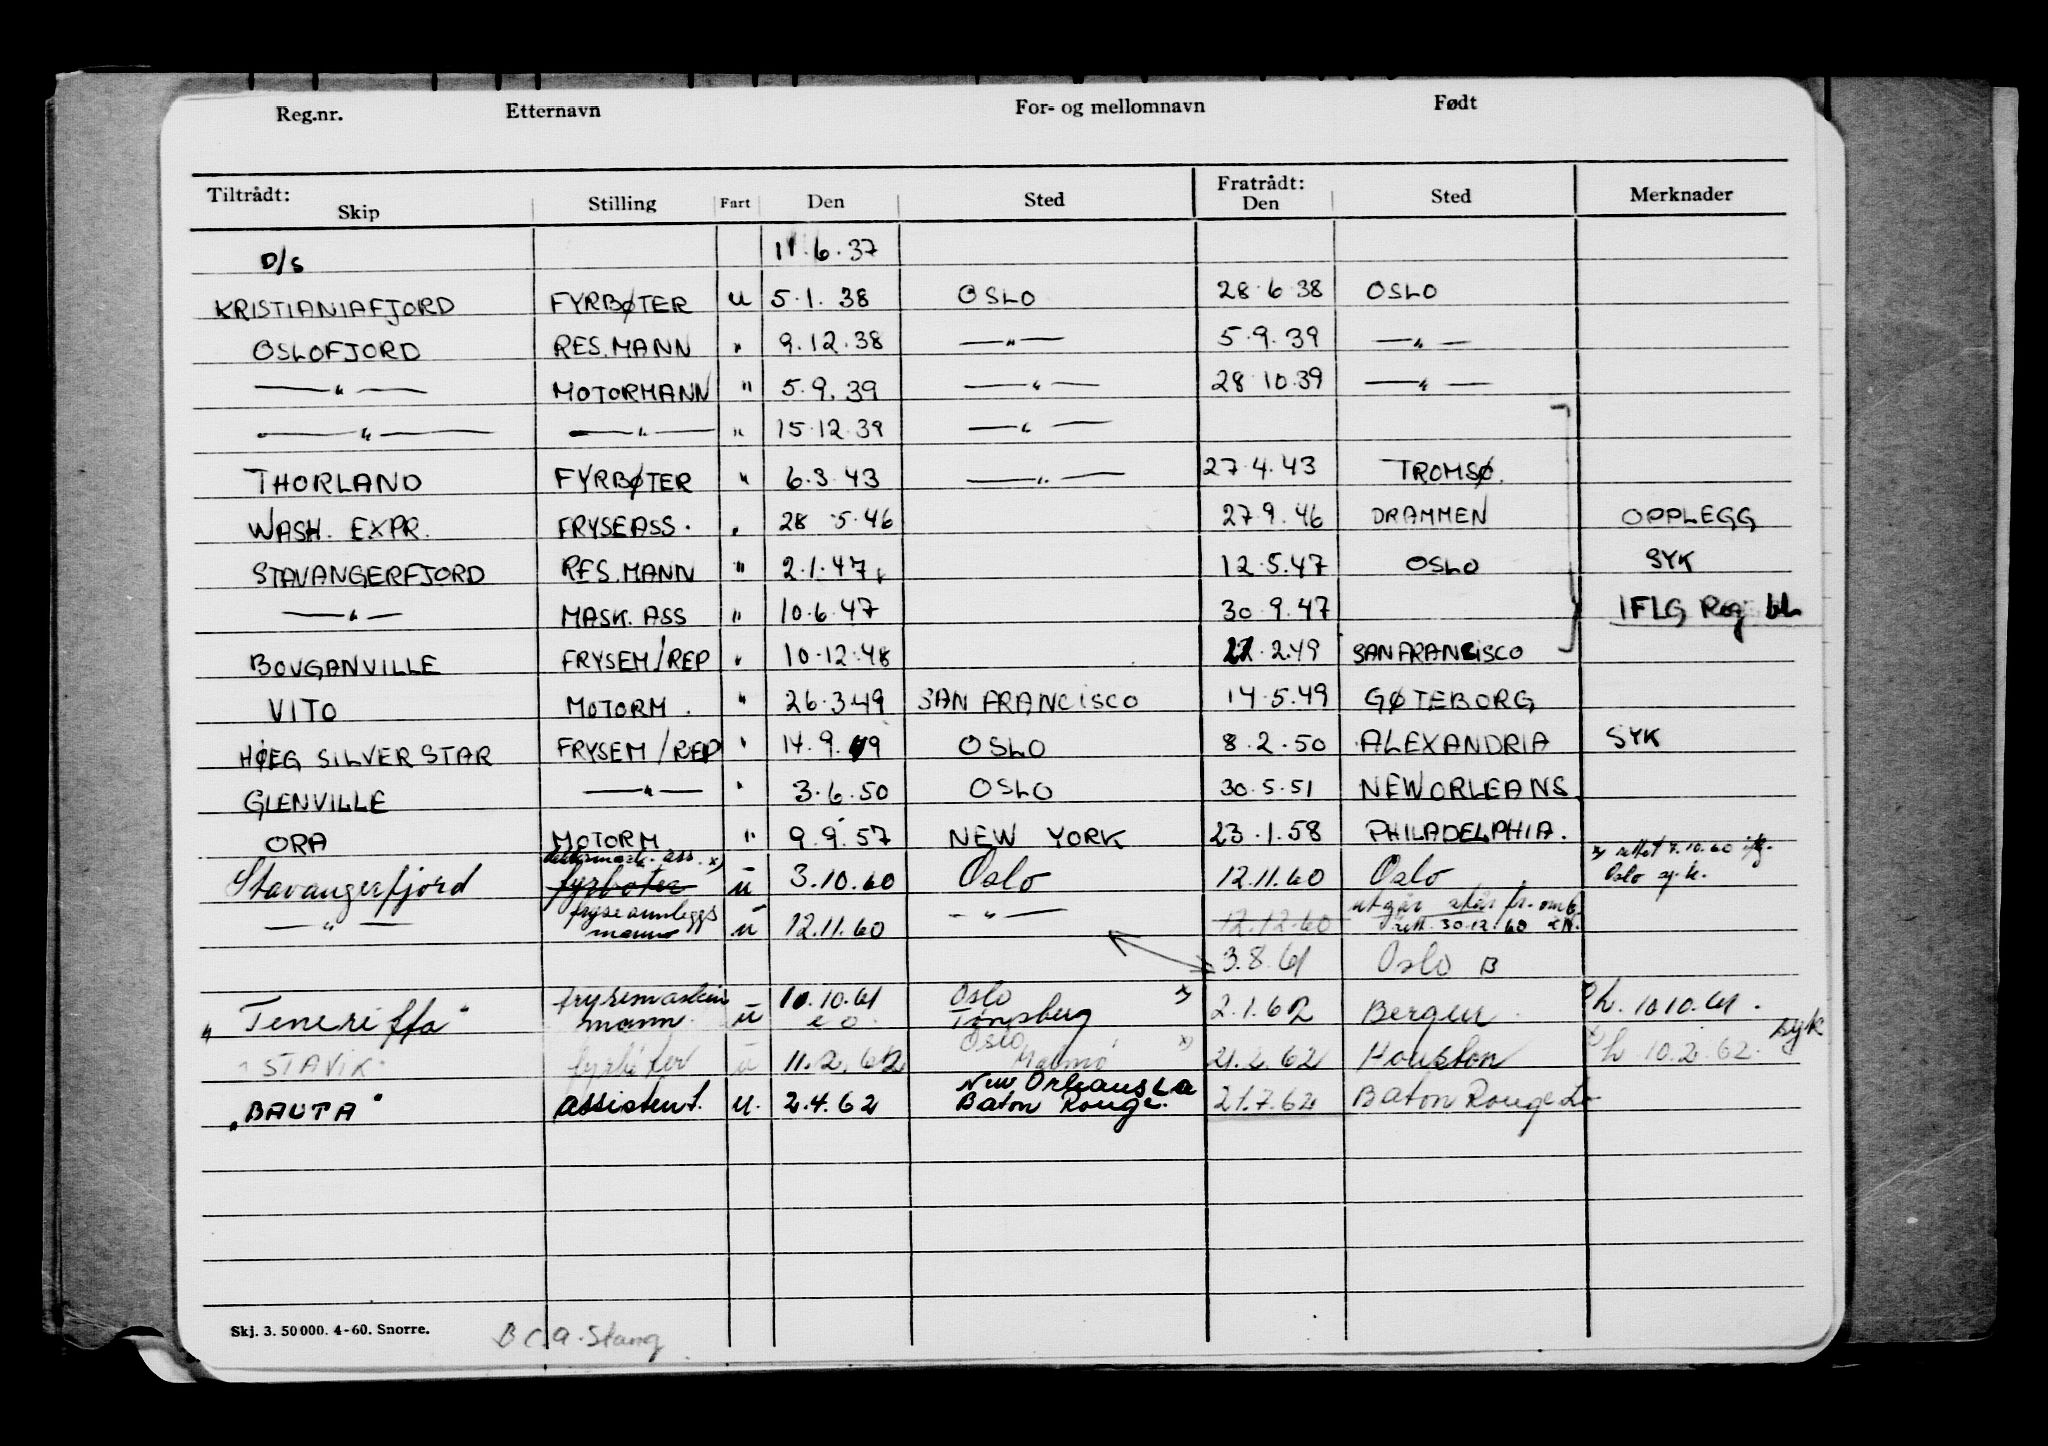 Reg.nr. Etternavn For- og mellomnavn Født
Tiltrådt: Skip Stilling Fart Den Sted Fratrådt: Den Sted Merknader
D/S 11.6.37
KRISTIANIAFJORD FYRBØTER U 5.1.38 OSLO 28.6.38 OSLO
OSLOFJORD RES.MANN " 9.12.38 —"— 5.9.39 —"—
—"— MOTORMANN " 5.9.39 —"— 28.10.39 —"—
—"— —"— " 15.12.39 —"—
THORLAND FYRBØTER " 6.3.43 —"— 27.4.43 TROMSØ.
WASH. EXPR. FRYSEASS. " 28.5.46 27.9.46 DRAMMEN OPPLEGG
STAVANGERFJORD RES.MANN " 2.1.47 12.5.47 OSLO SYK
—"— MASK.ASS " 10.6.47 30.9.47 IFLG Reg bl
BOUGANVILLE FRYSEM/REP " 10.12.48 22.2.49 SAN FRANCISCO
VITO MOTORM. " 26.3.49 SAN FRANCISCO 14.5.49 GØTEBORG
HØEG SILVER STAR FRYSEM/REP " 14.9.49 OSLO 8.2.50 ALEXANDRIA SYK
GLENVILLE —"— " 3.6.50 OSLO 30.5.51 NEW ORLEANS
ORA MOTORM " 9.9.57 NEW YORK 23.1.58 PHILADELPHIA.
ass. x) x) rettet 7.10.60 iflg.
Stavangerfjord fyrbøter u 3.10.60 Oslo 12.11.60 Oslo Oslo sj.k.
—"— fryseanleggs mann u 12.11.60 —"— 12.12.60 utgår
30.12.60
3.8.61 Oslo B
"Teneriffa" frysemaskin mann. u 10.10.61 Oslo Tønsberg x) 2.1.62 Bergen x) h. 10.10.61.
"STAVIK" fyrbøter u 11.2.62 Oslo Malmö x) 21.2.62 Houston x) h 10.2.62. syk
"BAUTA" assistent. u. 2.4.62 New Orleans La Baton Rouge. 21.7.62 Baton Rouge La
Skj. 3. 50 000. 4-60. Snorre.
B C.A. Stang